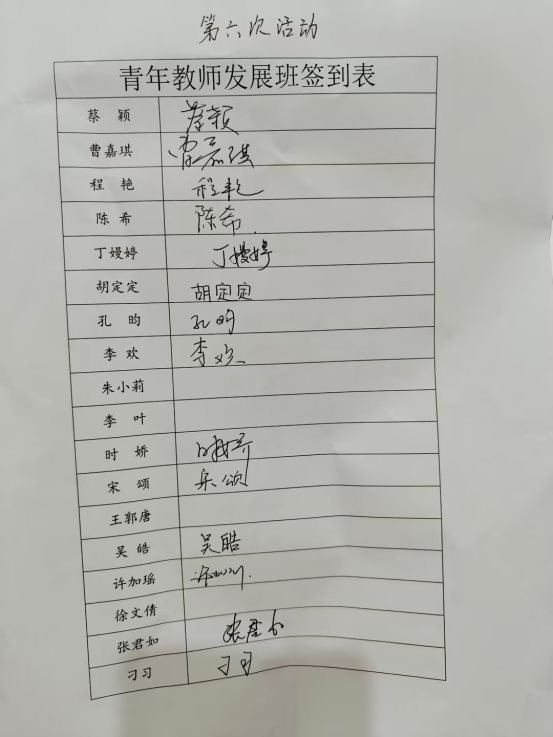 第六次活动
青年教师发展班签到表
蔡 颖 蔡颖
曹嘉琪 曹嘉琪
程 艳 程艳
陈 希 陈希.
丁嫚婷 丁嫚婷
胡定定 胡定定
孔 昀 孔昀
李 欢 李欢
朱小莉
李 叶
时 娇 时娇
宋 颂 宋颂
王郭唐
吴 皓 吴皓
许加瑶
徐文倩
张君如 张君如
刁习 刁习